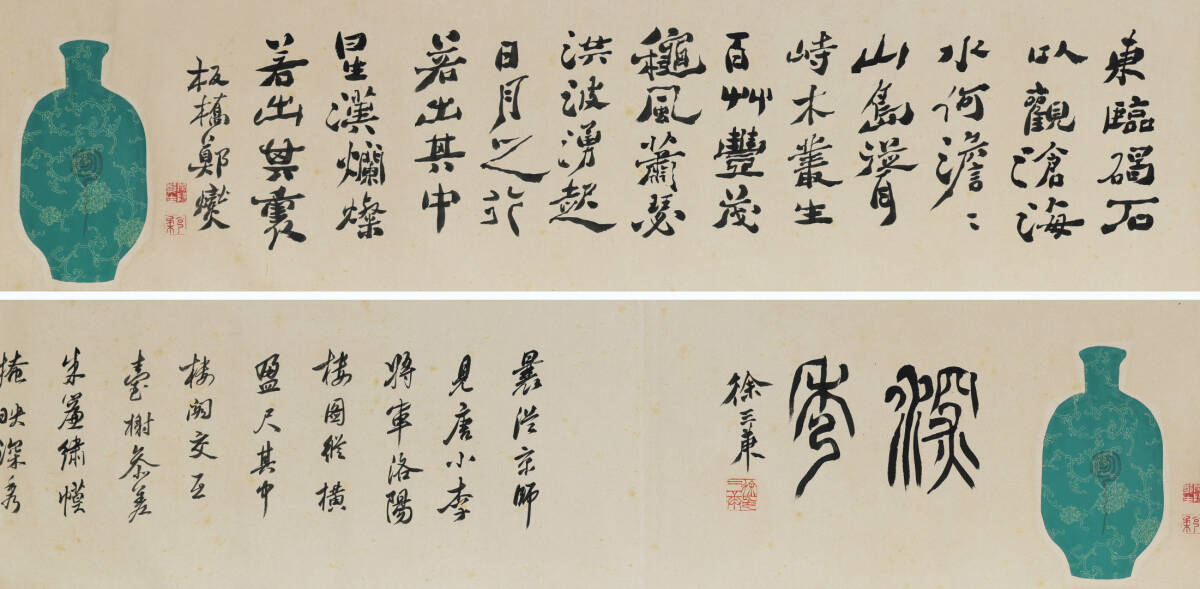 東臨碣石
以觀滄海
水何澹〻
山島㳫峙
峙木叢生
百艸豐茂
穐風蕭瑟
洪波湧起
日月之行
若出其中
星漢爛燦
若出其裏
板橋鄭燮
深秀
徐三庚
曩從京師
見唐小李
將軍洛陽
樓圖縱橫
盈尺其中
樓閣交互
臺榭參差
朱簾繡幙
掩映深秀